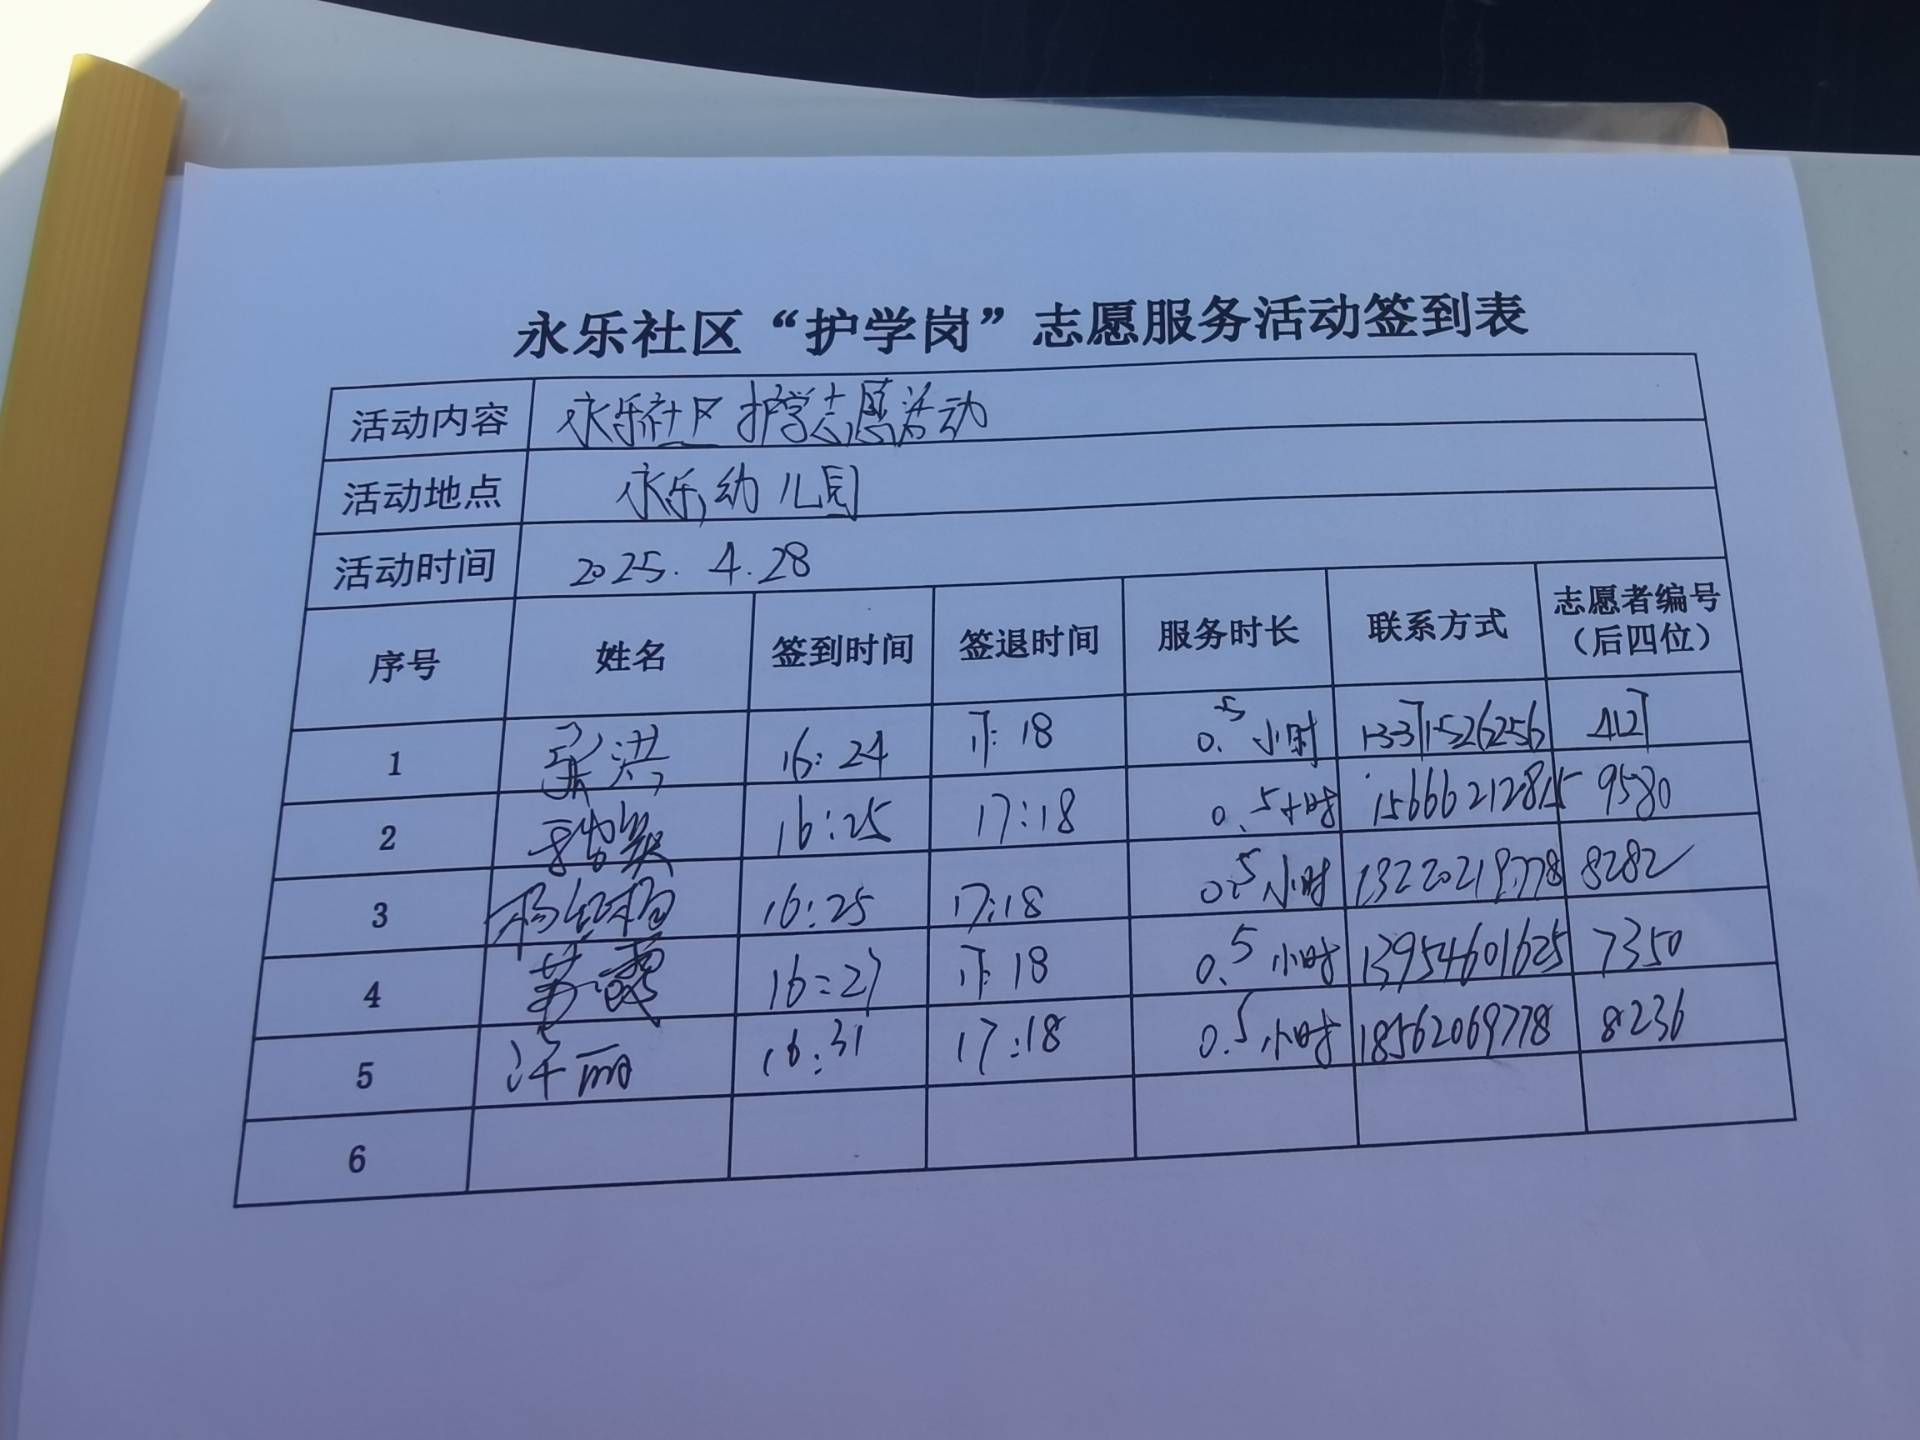 永乐社区“护学岗”志愿服务活动签到表
活动内容 永乐社区护学志愿活动
活动地点 永乐幼儿园
活动时间 2025.4.28
序号 姓名 签到时间 签退时间 服务时长 联系方式 志愿者编号（后四位）
1 16:24 17:18 0.5小时 13371526256
2 16:25 17:18 0.5小时 9580
3 16:25 17:18 0.5小时 13220219778 8282
4 16:27 17:18 0.5小时 13954601625 7350
5 16:31 17:18 0.5小时 18562069778 8236
6